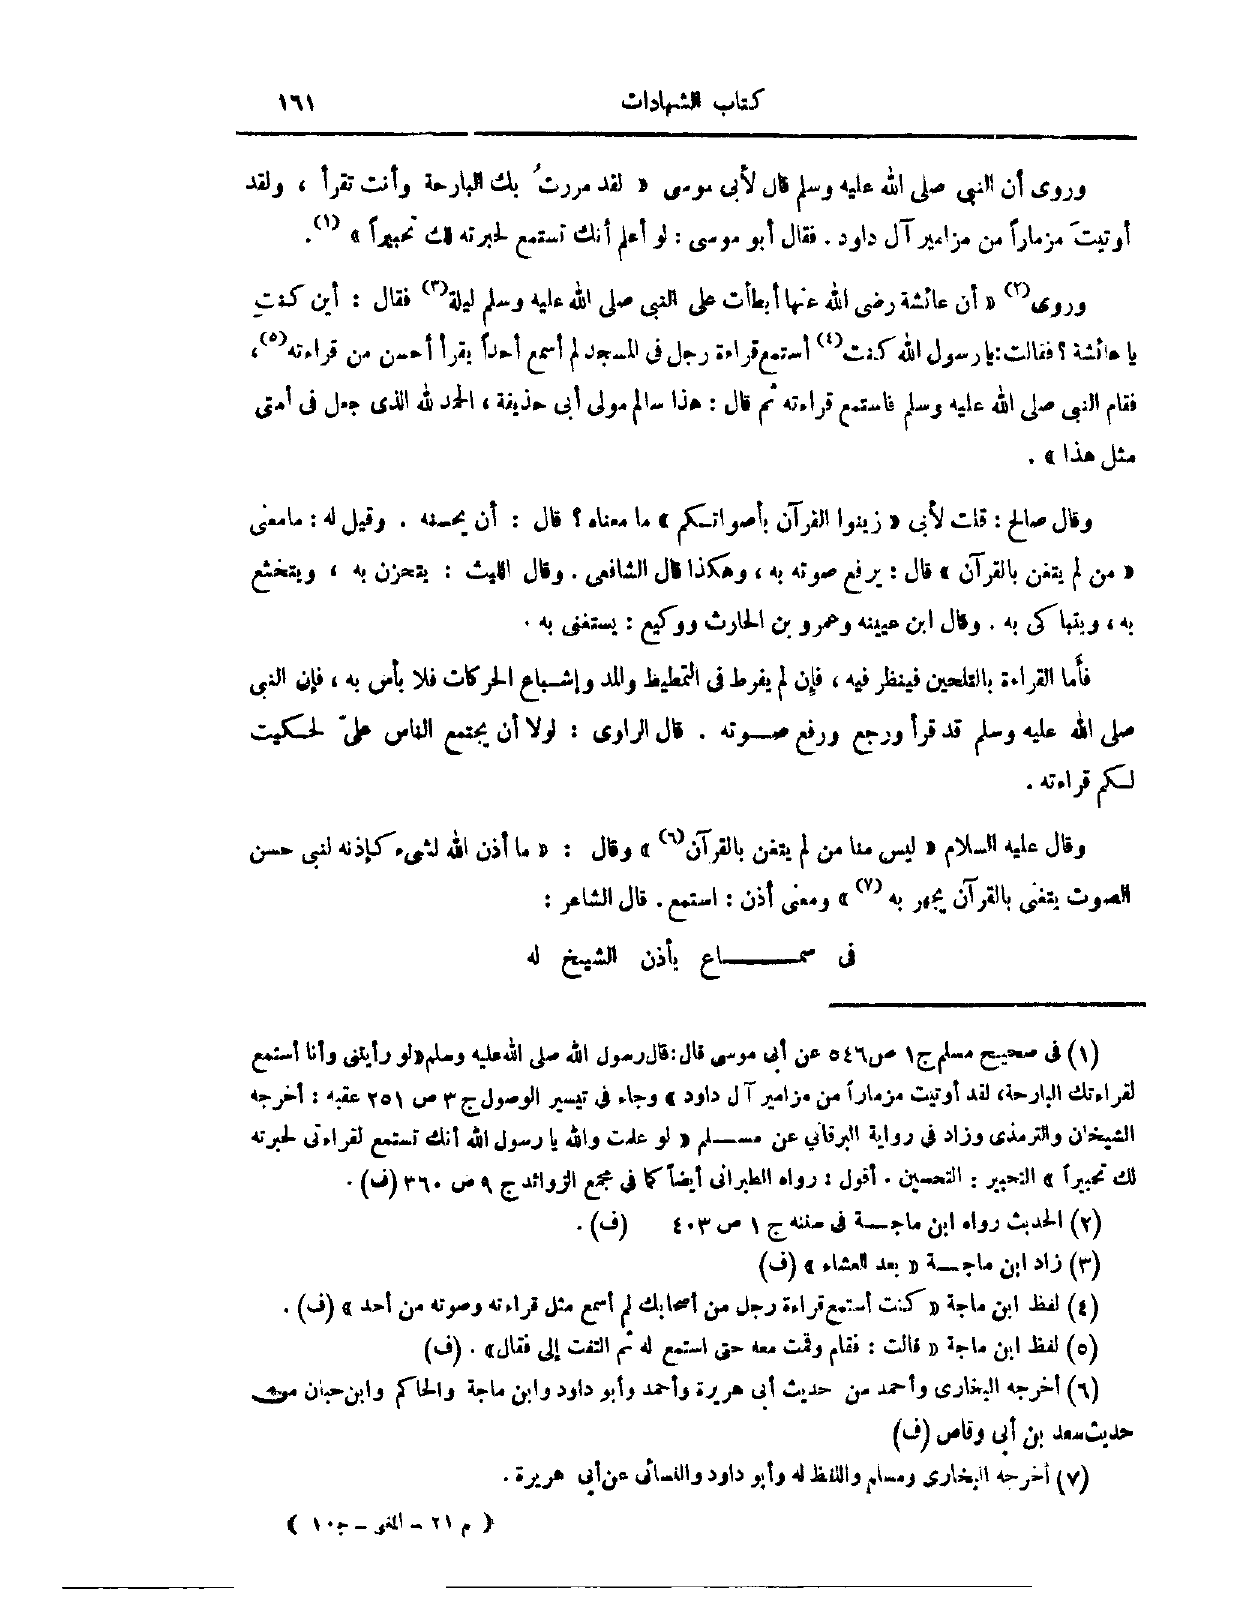 كتاب الشهادات ١٦١
وروى أن النبى صلى الله عليه وسلم قال لأبى موسى « لقد مررتُ بك البارحة وأنت تقرأ ، ولقد
أوتيتَ مزماراً من مزامير آل داود . فقال أبو موسى : لو أعلم أنك تستمع لحبرته لك تحبيراً » (١).
وروى(٢) « أن عائشة رضى الله عنها أبطأت على النبى صلى الله عليه وسلم ليلة(٣) فقال : أين كنتِ
يا عائشة ؟ فقالت : يا رسول الله كنت(٤) أستمع قراءة رجل فى المسجد لم أسمع أحداً يقرأ أحسن من قراءته(٥)،
فقام النبى صلى الله عليه وسلم فاستمع قراءته ثم قال : هذا سالم مولى أبى حذيفة ، الحمد لله الذى جعل فى أمتى
مثل هذا » .
وقال صالح : قلت لأبى « زينوا القرآن بأصواتكم » ما معناه ؟ قال : أن يحسنه . وقيل له : مامعنى
« من لم يتغن بالقرآن » قال : يرفع صوته به ، وهكذا قال الشافعى . وقال الليث : يتحزن به ، ويتخشع
به ، ويتباكى به . وقال ابن عيينه وعمرو بن الحارث ووكيع : يستغنى به .
فأَما القراءة بالتلحين فينظر فيه ، فإن لم يفرط فى التمطيط والمد وإشباع الحركات فلا بأس به ، فإن النبى
صلى الله عليه وسلم قد قرأ ورجع ورفع صوته . قال الراوى : لولا أن يجتمع الناس علىّ لحكيت
لكم قراءته .
وقال عليه السلام « ليس منا من لم يتغن بالقرآن(٦) » وقال : « ما أذن الله لشىء كإذنه لنبى حسن
الصوت يتغنى بالقرآن يجهر به (٧) » ومعنى أذن : استمع . قال الشاعر :
فى سماع يأذن الشيخ له
(١) فى صحيح مسلم ج١ ص٥٤٦ عن أبى موسى قال : قال رسول الله صلى الله عليه وسلم « لو رأيتنى وأنا أستمع
لقراءتك البارحة، لقد أوتيت مزماراً من مزامير آل داود » وجاء فى تيسير الوصول ج ٣ ص ٢٥١ عقبه : أخرجه
الشيخان والترمذى وزاد فى رواية البرقاني عن مسلم « لو علمت والله يا رسول الله أنك تستمع لقراءتى لحبرته
لك تحبيراً » التحبير : التحسين . أقول : رواه الطبرانى أيضاً كما فى مجمع الزوائد ج ٩ ص ٣٦٠ (ف) .
(٢) الحديث رواه ابن ماجة فى سننه ج ١ ص ٤٠٣ (ف) .
(٣) زاد ابن ماجة « بعد العشاء » (ف)
(٤) لفظ ابن ماجة « كنت أستمع قراءة رجل من أصحابك لم أسمع مثل قراءته وصوته من أحد » (ف) .
(٥) لفظ ابن ماجة « قالت : فقام وقمت معه حتى استمع له ثم التفت إلى فقال» . (ف)
(٦) أخرجه البخارى وأحمد من حديث أبى هريرة وأحمد وأبو داود وابن ماجة والحاكم وابن حبان من
حديث سعد بن أبى وقاص (ف)
(٧) أخرجه البخارى ومسلم واللفظ له وأبو داود والنسائى عن أبى هريرة .
( م ٢١ – المغنى – ج١٠ )